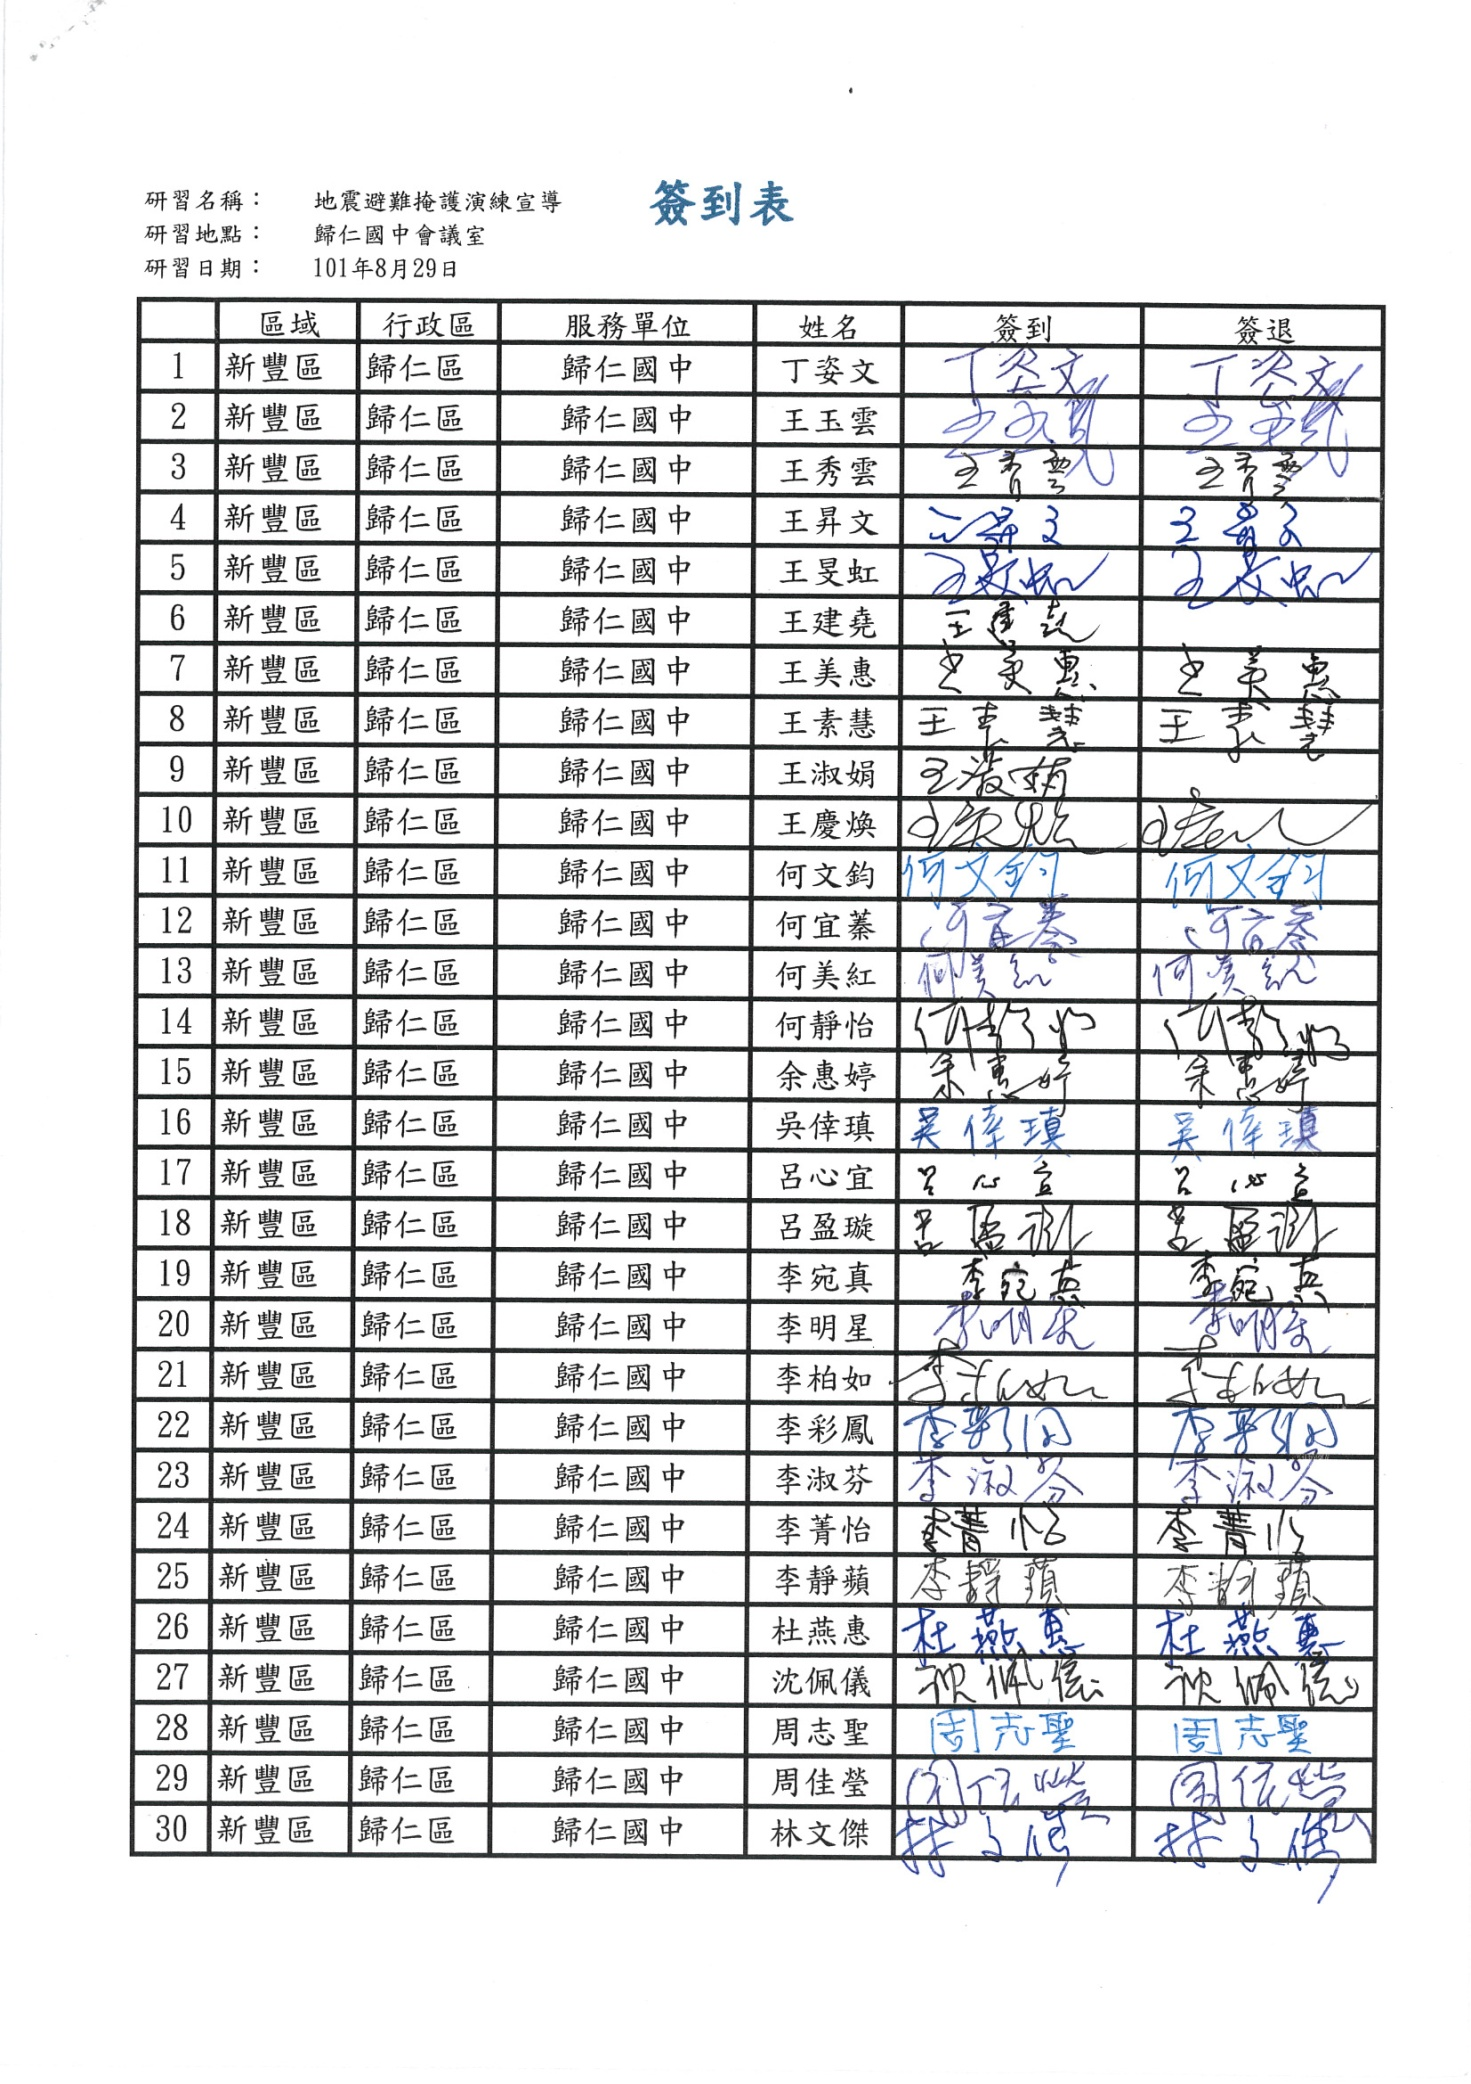 簽到表
研習名稱： 地震避難掩護演練宣導
研習地點： 歸仁國中會議室
研習日期： 101年8月29日
區域 行政區 服務單位 姓名 簽到 簽退
1 新豐區 歸仁區 歸仁國中 丁姿文 丁姿文 丁姿文
2 新豐區 歸仁區 歸仁國中 王玉雲 王玉雲 王玉雲
3 新豐區 歸仁區 歸仁國中 王秀雲 王秀雲 王秀雲
4 新豐區 歸仁區 歸仁國中 王昇文 王昇文 王昇文
5 新豐區 歸仁區 歸仁國中 王旻虹 王旻虹 王旻虹
6 新豐區 歸仁區 歸仁國中 王建堯 王建堯
7 新豐區 歸仁區 歸仁國中 王美惠 王美惠 王美惠
8 新豐區 歸仁區 歸仁國中 王素慧 王素慧 王素慧
9 新豐區 歸仁區 歸仁國中 王淑娟 王淑娟
10 新豐區 歸仁區 歸仁國中 王慶煥 王慶煥
11 新豐區 歸仁區 歸仁國中 何文鈞 何文鈞 何文鈞
12 新豐區 歸仁區 歸仁國中 何宜蓁 何宜蓁 何宜蓁
13 新豐區 歸仁區 歸仁國中 何美紅 何美紅 何美紅
14 新豐區 歸仁區 歸仁國中 何靜怡 何靜怡 何靜怡
15 新豐區 歸仁區 歸仁國中 余惠婷 余惠婷 余惠婷
16 新豐區 歸仁區 歸仁國中 吳倖瑱 吳倖瑱 吳倖瑱
17 新豐區 歸仁區 歸仁國中 呂心宜 呂心宜 呂心宜
18 新豐區 歸仁區 歸仁國中 呂盈璇 呂盈璇 呂盈璇
19 新豐區 歸仁區 歸仁國中 李宛真 李宛真 李宛真
20 新豐區 歸仁區 歸仁國中 李明星 李明星 李明星
21 新豐區 歸仁區 歸仁國中 李柏如 李柏如 李柏如
22 新豐區 歸仁區 歸仁國中 李彩鳳 李彩鳳 李彩鳳
23 新豐區 歸仁區 歸仁國中 李淑芬 李淑芬 李淑芬
24 新豐區 歸仁區 歸仁國中 李菁怡 李菁怡 李菁怡
25 新豐區 歸仁區 歸仁國中 李靜蘋 李靜蘋 李靜蘋
26 新豐區 歸仁區 歸仁國中 杜燕惠 杜燕惠 杜燕惠
27 新豐區 歸仁區 歸仁國中 沈佩儀 沈佩儀 沈佩儀
28 新豐區 歸仁區 歸仁國中 周志聖 周志聖 周志聖
29 新豐區 歸仁區 歸仁國中 周佳瑩 周佳瑩 周佳瑩
30 新豐區 歸仁區 歸仁國中 林文傑 林文傑 林文傑